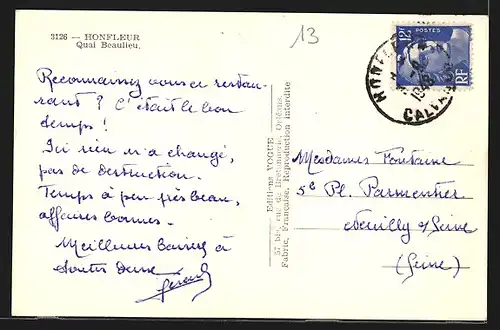 3126 — HONFLEUR
Quai Beaulieu.
13
12F
POSTES
RF
HONFLEUR
CALVADOS
Reconnaissez vous ce restau-
rant ? C'était le bon
temps !
Ici rien n'a changé,
pas de destruction.
Temps à peu près beau,
affaires bonnes.
Meilleurs baisers à
toutes deux
Gérard
Editions VOGUE
57 bis, rue de Bretonnerie, Orléans
Fabric. Française, Reproduction interdite
Mesdames Fontaine
5 Pl. Parmentier
Neuilly s/ Seine
(Seine)